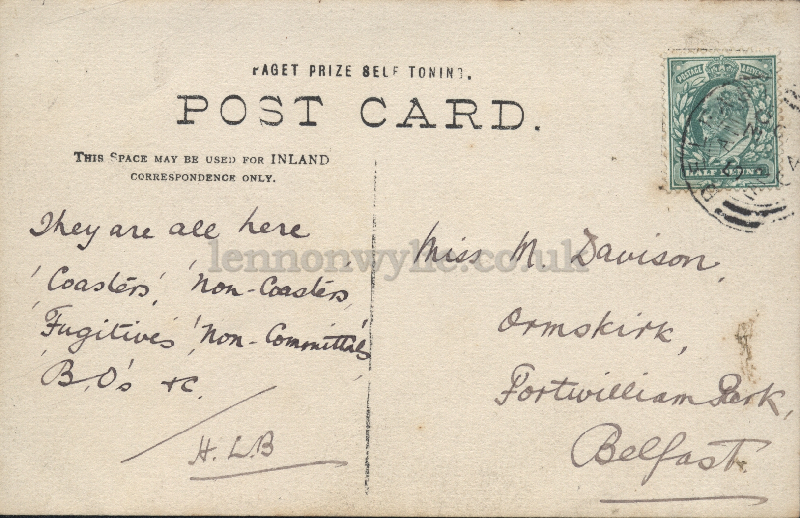 PAGET PRIZE SELF TONING.
POST CARD.
THIS SPACE MAY BE USED FOR INLAND
CORRESPONDENCE ONLY.
They are all here
'Coasters', 'Non-Coasters,
'Fugitives' 'Non-Committals
'B.O's &c.
H. L B
Miss M. Davison,
Ormskirk,
Fortwilliam Park,
Belfast.
POSTAGE
HALF PENNY
lennonwylie.co.uk